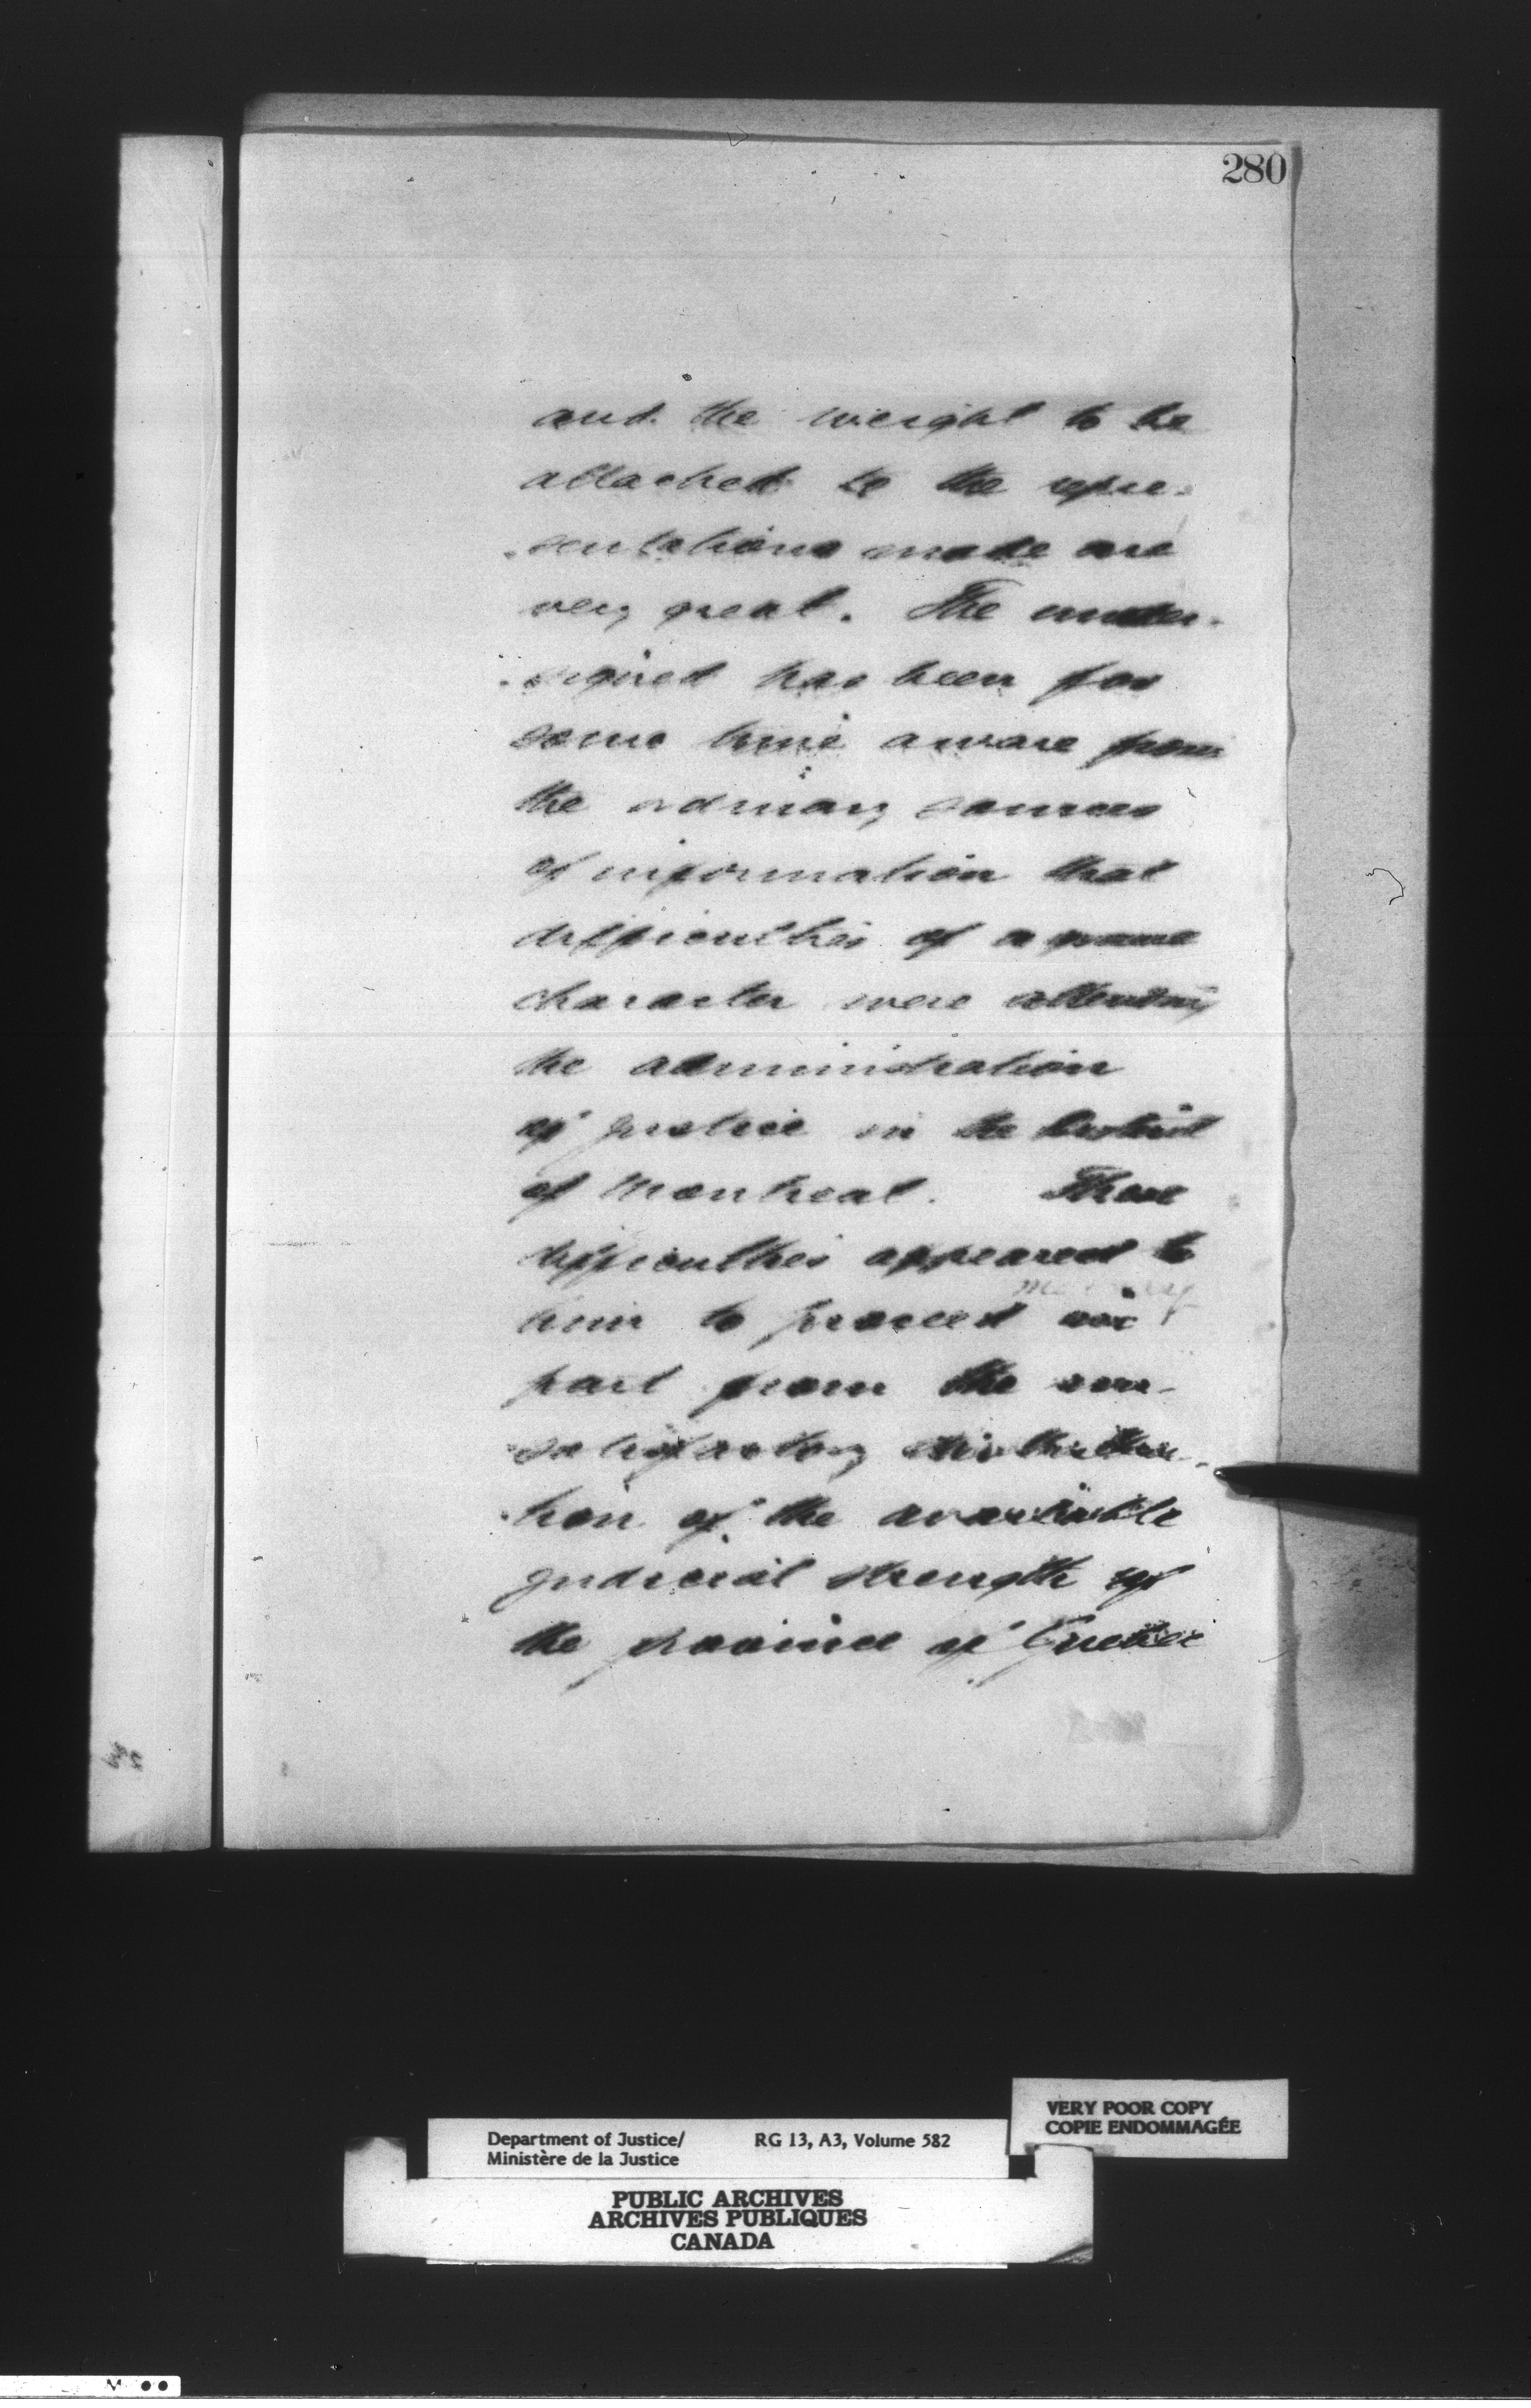 280
and the weight to be
attached to the repre-
-sentations made are
very great. The under-
-signed has been for
some time aware from
the ordinary sources
of information that
difficulties of a grave
character were attending
the administration
of justice in the District
of Montreal. These
difficulties appeared to
him to proceed in
part from the un-
-satisfactory distribu-
-tion of the available
judicial strength of
the province of Quebec
VERY POOR COPY
COPIE ENDOMMAGÉE
Department of Justice/ RG 13, A3, Volume 582
Ministère de la Justice
PUBLIC ARCHIVES
ARCHIVES PUBLIQUES
CANADA